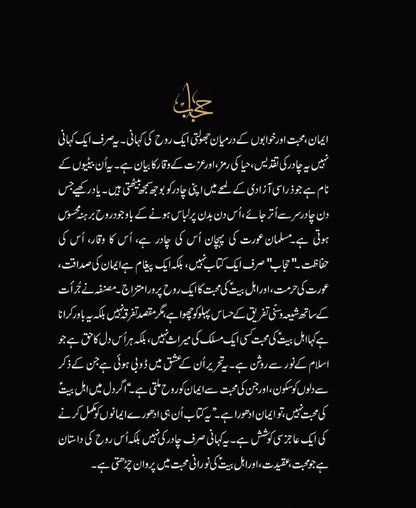 حجاب
ایمان، محبت اور خوابوں کے درمیان جھولتی ایک روح کی کہانی۔ یہ صرف ایک کہانی
نہیں یہ چادر کی تقدیس، حیا کی رمز، اور عزت کے وقار کا بیان ہے۔ یہ اُن بیٹیوں کے
نام ہے جو ذرا سی آزادی کے لمحے میں اپنی چادر کو بوجھ سمجھ بیٹھتی ہیں۔ یاد رکھیے جس
دن چادر سر سے اُتر جائے، اُس دن بدن پر لباس ہونے کے باوجود روح برہنہ محسوس
ہوتی ہے۔ مسلمان عورت کی پہچان اُس کی چادر ہے، اُس کا وقار، اُس کی
حفاظت۔ "حجاب" صرف ایک کتاب نہیں، بلکہ ایک پیغام ہے ایمان کی صداقت،
عورت کی حرمت، اور اہل بیتؑ کی محبت کا ایک روح پرور امتزاج۔ مصنفہ نے جُرأت
کے ساتھ شیعہ و سنی تفریق کے حساس پہلو کو چھوا ہے، مگر مقصد تفرقہ نہیں بلکہ یہ باور کرانا
ہے کہ اہل بیتؑ کی محبت کسی ایک مسلک کی میراث نہیں، بلکہ ہر اُس دل کا حق ہے جو
اسلام کے نور سے روشن ہے۔ یہ تحریر اُن کے عشق میں ڈوبی ہوئی ہے جن کے ذکر
سے دلوں کو سکون، اور جن کی محبت سے ایمان کو روح ملتی ہے۔ "اگر دل میں اہل بیتؑ
کی محبت نہیں، تو ایمان ادھورا ہے۔" یہ کتاب اُن ہی ادھورے ایمانوں کو مکمل کرنے
کی ایک عاجز سی کوشش ہے۔ یہ کہانی صرف چادر کی نہیں بلکہ اُس روح کی داستان
ہے جو محبت، عقیدت، اور اہل بیتؑ کی نورانی محبت میں پروان چڑھتی ہے۔